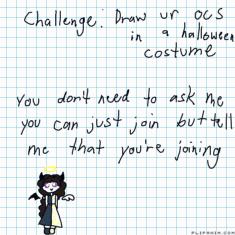 Challenge: Draw ur ocs
in a halloween
costume
You don't need to ask me
you can just join but tell
me that you're joining
FLIPANIM.COM